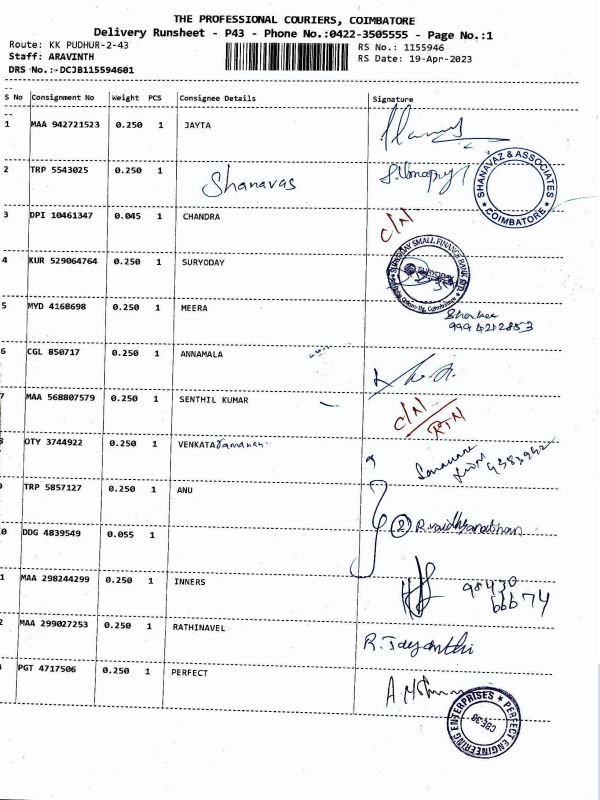 THE PROFESSIONAL COURIERS, COIMBATORE
Delivery Runsheet - P43 - Phone No.:0422-3505555 - Page No.:1
Route: KK PUDHUR-2-43 RS No.: 1155946
Staff: ARAVINTH RS Date: 19-Apr-2023
DRS No.:-DCJB115594601
S No Consignment No Weight PCS Consignee Details Signature
1 MAA 942721523 0.250 1 JAYTA
2 TRP 5543025 0.250 1 Shanavas
SHANAVAZ & ASSOCIATES * COIMBATORE *
3 DPI 10461347 0.045 1 CHANDRA C/N
4 KUR 529064764 0.250 1 SURYODAY
SURYODAY SMALL FINANCE BANK LTD
SURYODAY
5 MYD 4168698 0.250 1 MEERA
9994212853
6 CGL 850717 0.250 1 ANNAMALA
7 MAA 568807579 0.250 1 SENTHIL KUMAR C/N
RTN
OTY 3744922 0.250 1 VENKATAramanan
TRP 5857127 0.250 1 ANU
0 DDG 4839549 0.055 1 2 R.vaidhyanathan
1 MAA 298244299 0.250 1 INNERS 98430
66674
2 MAA 299027253 0.250 1 RATHINAVEL R. Jayanthi
PGT 4717506 0.250 1 PERFECT
PERFECT ENGINEERING ENTERPRISES *
CBE-38